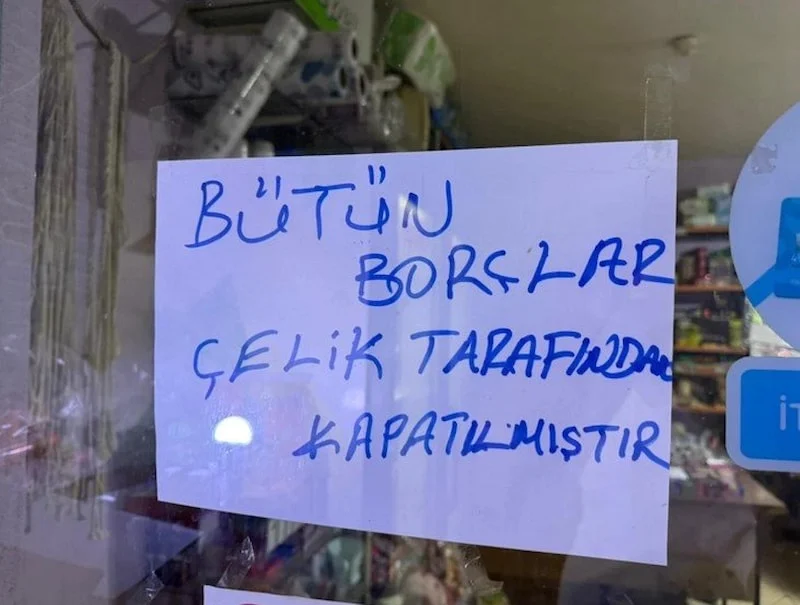 BÜTÜN
BORÇLAR
ÇELİK TARAFINDAN
KAPATILMIŞTIR
İT